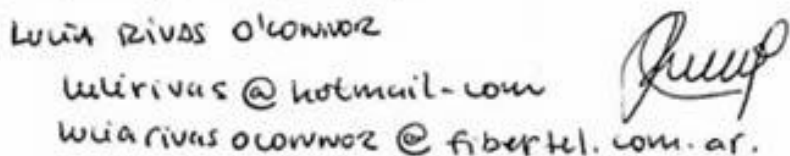 Lucía Rivas O'Connor
lulirivas@hotmail.com
luciarivasoconnor@fibertel.com.ar.